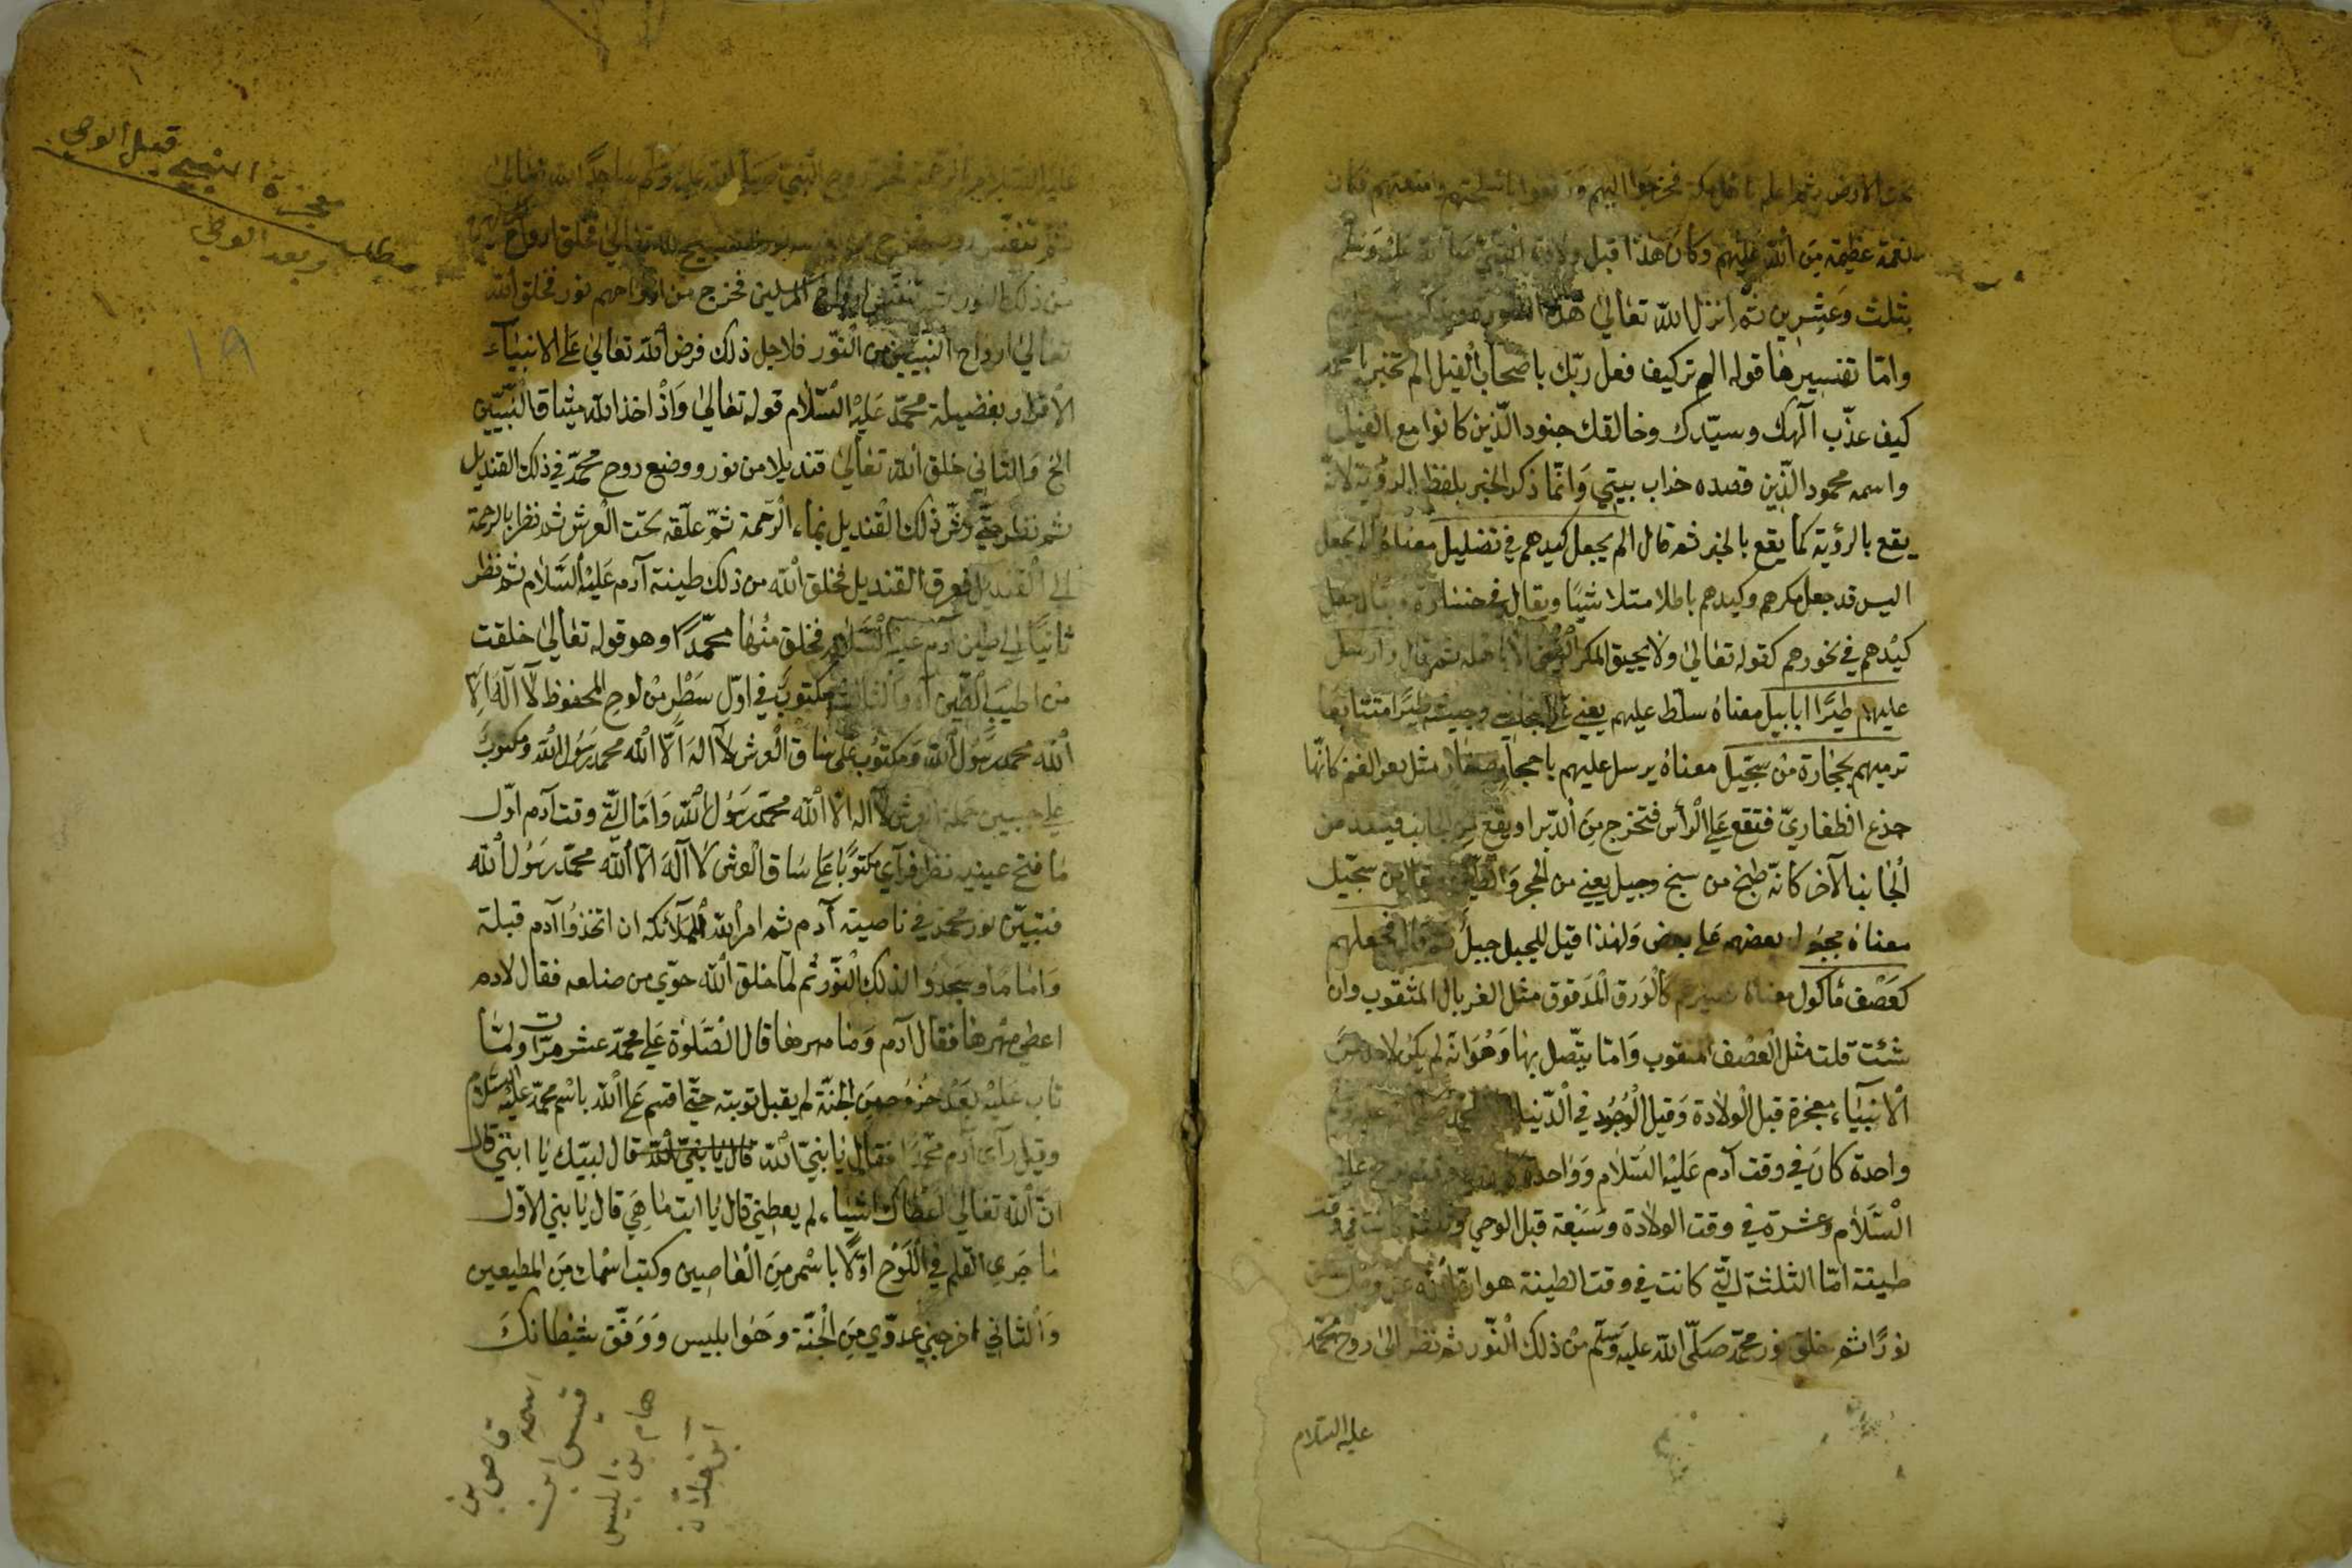 تحت الارض ثم اعلم باهل مكة فخرجوا اليهم ورفعوا وامتعتهم فكان
نعمة عظيمة من الله عليهم وكان هذا قبل ولادة النبي صلى الله عليه وسلم
بثلث وعشرين ثم انزل الله تعالى هذه السورة
واما تفسيرها قوله الم تركيف فعل ربّك باصحاب الفيل الم تخبر يا محمد
كيف عذّب آلهك وسيّدك وخالقك جنود الّذين كانوا مع الفيل
واسمه محمود الّذين قصده خراب بيتي وَانّما ذكر الخبر بلفظ الرؤية لانّه
يقع بالرؤية كما يقع بالخبر ثم قال الم يجعل كيدهم في تضليل معناه الم يجعل
اليس قد جعل مكرهم وكيدهم باطلا متلاشيًا ويقال في خسارة ويقال جعل
كيْدهم في نحورهم كقوله تعالى ولا يحيق المكر السّيّئ الا باهله ثم قال وارسل
عليهم طيرًا ابابيل معناه سلّط عليهم يعني طيرًا متتابعًا
ترميهم بحجارة من سجّيل معناه يرسل عليهم باحجار صغار مثل بعر الغنم كانّها
جذع اظفاريّ فتقع على الرأس فتخرج من الدّبر او يقع من الجانب فينفذ من
الجانب الآخر كانّه طبخ من سنج وجيل يعني من الحجر والطّين سجّيل
معناه بعضهم على بعض ولهذا قيل للجبل جبل ثم قال فجعلهم
كعَصْف مأكول معناه كالورق المدقوق مثل الغربال المثقوب وان
شئت قلت مثل العصف المثقوب وامّا يتّصل بها وهو انّه لم يكن لاحد من
الانبيآء معجزة قبل الولادة وقبل الوجود في الدّنيا الا لمحمّد
واحدة كان في وقت آدم عليه السّلام وواحدة
السّلام وعشرة في وقت الولادة وسبعة قبل الوحي وثلثة كانت في وقت
طينة امّا الثلثة الّتي كانت في وقت الطينة هو
نورًا ثم خلق نور محمّد صلّى الله عليه وسلّم من ذلك النّور ثم نظر الى روح محمّد
عليه السّلام
عليه السّلام بالرحمة روح النّبي صلى الله عليه وسلم ساجدًا لله تعالى
ثم تنفّس تسبيح لله تعالى فخلق ارواح
من ذلك النور ثم تنفّس ارواح المرسلين فخرج من ارواحهم نور فخلق الله
تعالى ارواح النبيّين من النّور فلاجل ذلك فرض الله تعالى على الانبيآء
الاقرار بفضيلة محمّد عليه السّلام قوله تعالى وَاذْ اخذ الله ميثاق النّبيّين
الخ والثّاني خلق الله تعالى قنديلا من نور ووضع روح محمّد في ذلك القنديل
ثم نظر حتّى رشّ ذلك القنديل بماء الرّحمة ثمّ علّقه تحت العرش ثم نظر بالرحمة
الى القنديل فعرق القنديل فخلق الله من ذلك طينة آدم عليه السّلام ثم نظر
ثانيًا الى طين آدم عليه السّلام فخلق منها محمّدًا وهو قوله تعالى خلقت
من اطيب الطّين آدم والثالث مكتوب في اوّل سطر من لوح المحفوظ لآ اله الّا
الله محمد رسول الله ومكتوب على ساق العرش لآ اله الّا الله محمد رسول الله ومكتوب
على جبين حملة العرش لآ اله الا الله محمّد رسول الله وامّا الّتي وقت آدم اوّل
ما فتح عينيه نظر فرآى مكتوبًا على ساق العرش لا آله الّا الله محمّد رسول الله
فتبيّن نور محمّد في ناصية آدم ثم امر الله الملآئكة ان اتّخذوا آدم قبلة
واماما وسجدوا لذلك النّور ثم لمّا خلق الله حوّى من ضلعه فقال لادم
اعطي مهرها فقال آدم وما مهرها قال الصّلوة على محمّد عشر مرّات ولمّا
تاب عليه بعد خروجه من الجنّة لم يقبل توبته حتّى اقسم على الله باسم محمّد عليه السّلام
وقيل رآى آدم محمّدًا فقال يا بنيّ الله قال يا بنيّ الله قال لبيّك يا ابتي قال
انّ الله تعالى اعطاك اشياء لم يعطني قال يا ابت ما هي قال يا بني الاوّل
ما جرى القلم في اللّوح اوّلًا باسم من العاصين وكتب اسمك من المطيعين
والثاني اخرجني عدوّي من الجنّة وهو ابليس ووفّق شيطانك
معجزة النبي قبل الوحي
مطلب وبعد الوحي
١٩
اسمه
قيس ابن
هام بن ابليس